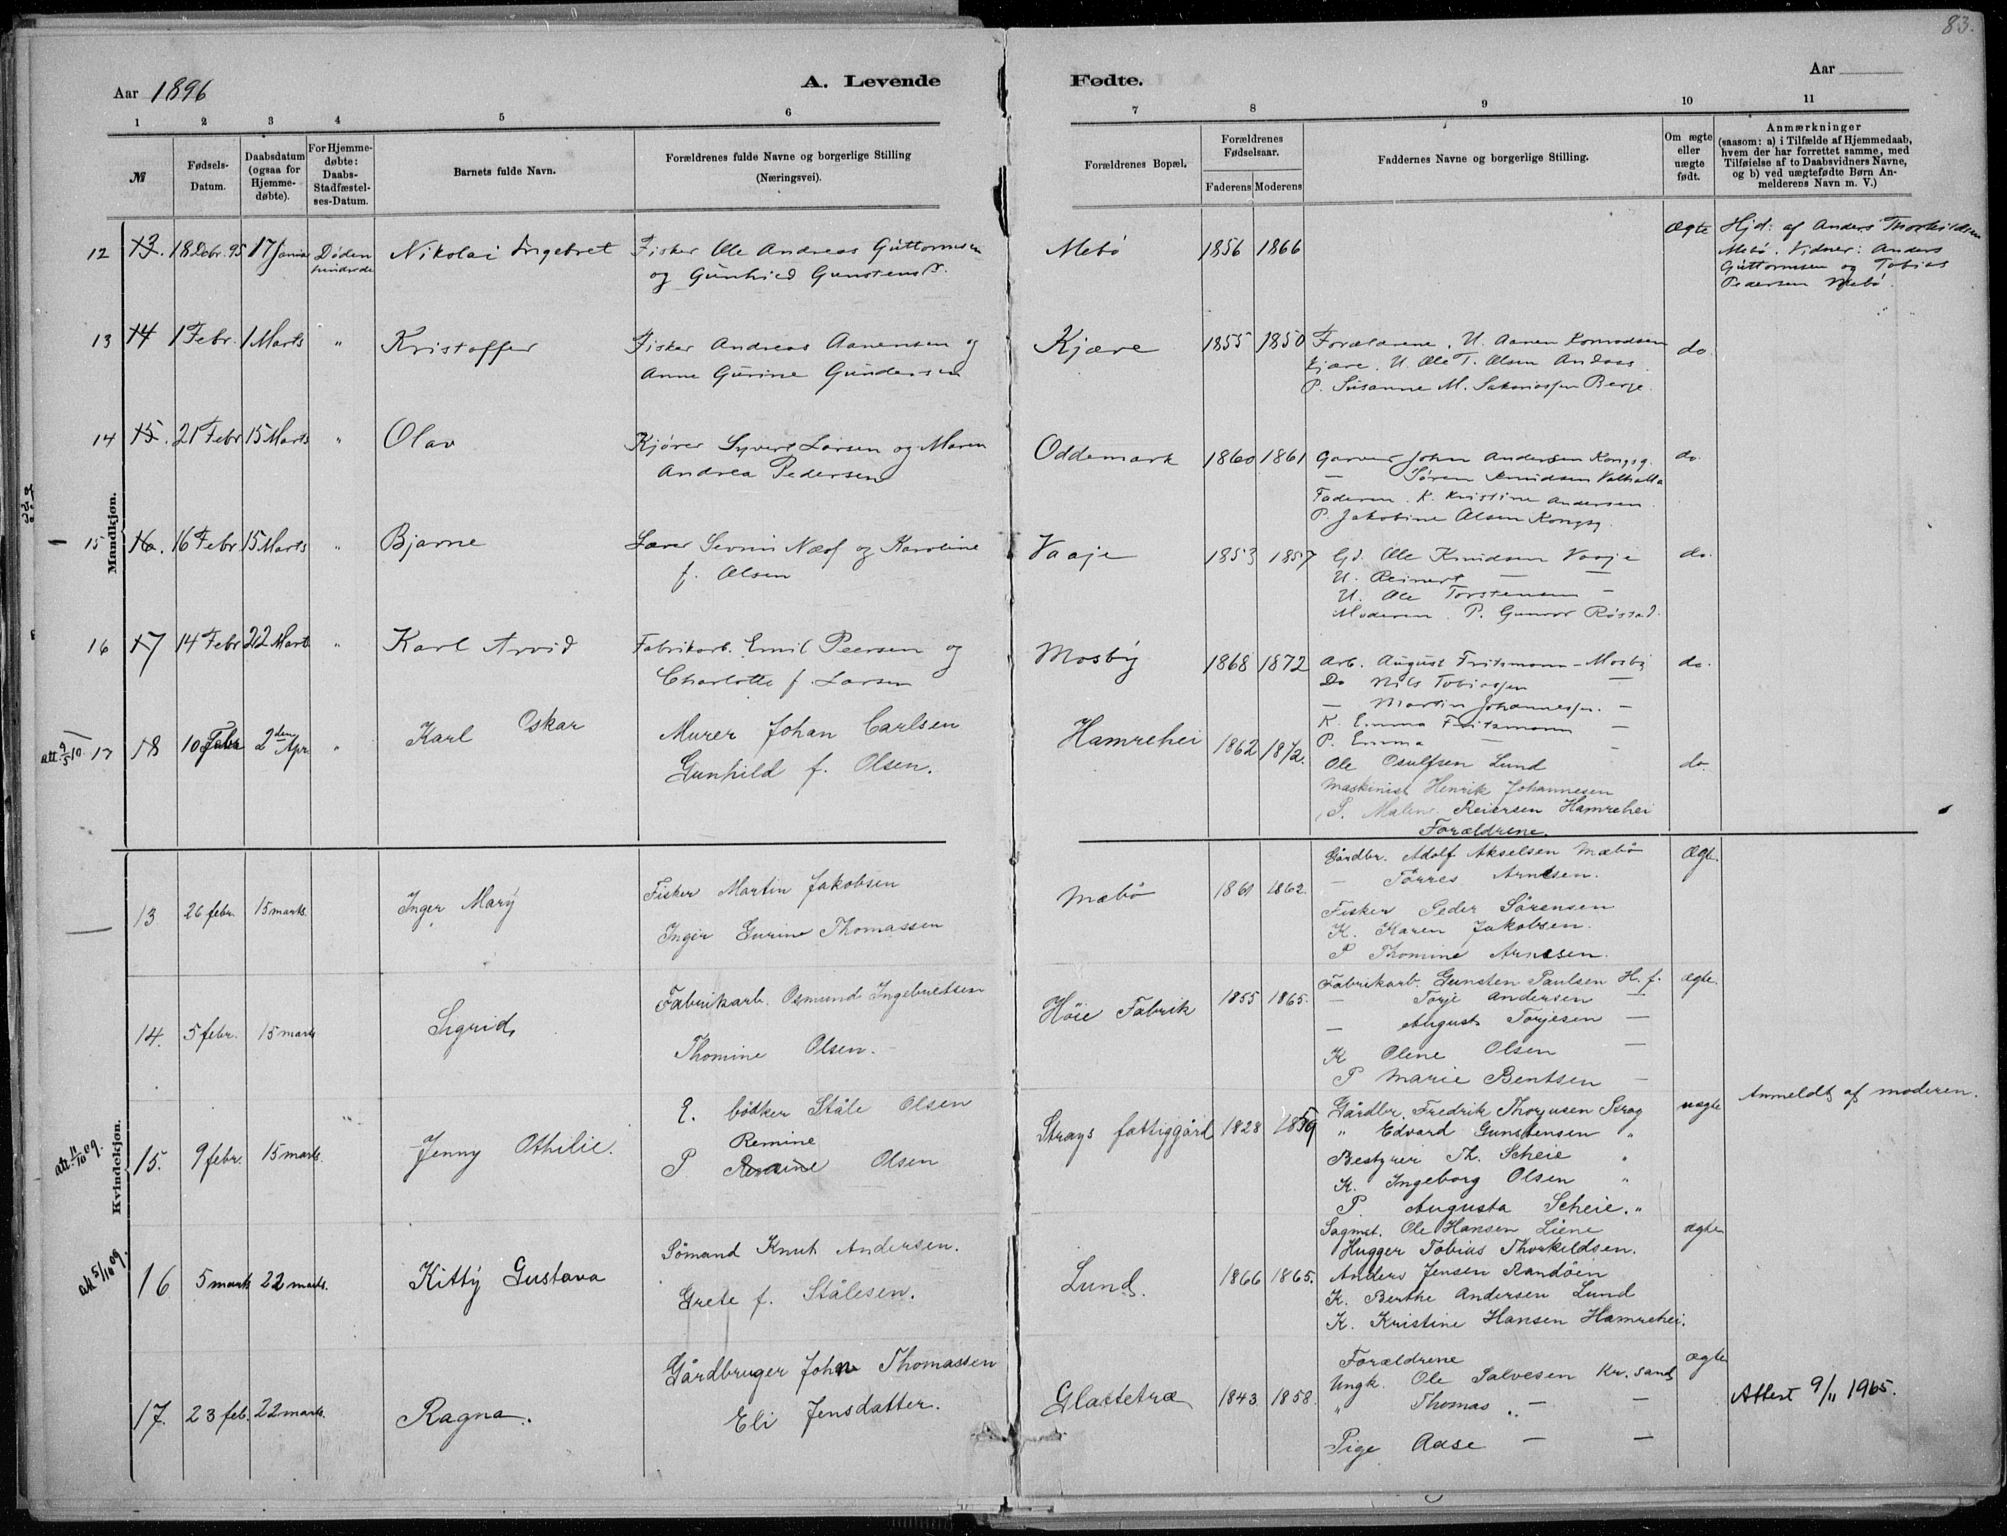 83.
Aar 1896
A. Levende Fødte.
Aar
1 2 3 4 5 6 7 8 9 10 11
№
Fødsels-Datum.
Daabsdatum (ogsaa for Hjemme-døbte).
For Hjemme-døbte: Daabs-Stadfæstel-ses-Datum.
Barnets fulde Navn.
Forældrenes fulde Navne og borgerlige Stilling (Næringsvei).
Forældrenes Bopæl.
Forældrenes Fødselsaar.
Faderens Moderens
Faddernes Navne og borgerlige Stilling.
Om ægte eller uægte født.
Anmærkninger
(saasom: a) i Tilfælde af Hjemmedaab,
hvem der har forrettet samme, med
Tilføielse af to Daabsvidners Navne,
og b) ved uægtefødte Børn An-
melderens Navn m. V.)
Mandkjøn.
12 13. 18 Debr. 95 17 Januar Døden Nikolai Ingebret Fisker Ole Andreas Guttormsen Mebø 1856 1866 Ægte Hjd: af Anders Thorkildsen
og Gunhild Gunstensd. Mebø. Vidner: Anders
Guttormsen og Tobias
Pedersen Mebø.
13 14 1 Febr. 1 Marts " Kristoffer Fisker Andreas Aanensen og Kjære 1855 1850 Forældrene, U. Aanen do.
Anne Gurine Gundersen Kjære. U. Ole T. Olsen Andaas.
P. Susanne M. Sakariassen Berge.
14 15. 21 Febr 15 Marts " Olav Kjører Syvert Larsen og Maren Oddemark 1860 1861 Garver John Andersen Kongsg. do.
Andrea Pedersen — Søren Knudsen Valhalla
Faderen. K. Kristine Andersen.
P. Jakobine Olsen Kongsg.
15 16. 16 Febr 15 Marts " Bjarne Lærer Sevrin Næsf og Karoline Vaaje 1853 1857 Gd. Ole Knudsen Vaaje do.
f. Olsen U. Reinert — —
U. Ole Torstensen —
Moderen. P. Gunvor Røstad.
16 17 14 Febr 22 Mart " Karl Arvid Fabrikarb. Emil Peersen og Mosby 1868 1872 Arb. August Fritsmann - Mosby do.
Charlotte f. Larsen Do Nils Tobiassen —
— Martin Johannessen. —
K. Emma Fritsmann —
P. Emma — —
att. 9/5 10. 17 18 10 Febr 2den Apr " Karl Oskar Murer Johan Carlsen Hamrehei 1862 1872. Ole Osulfsen Lund do.
Gunhild f. Olsen. Maskinist Henrik Johannesen
P. Malene Reiersen Hamrehei
Forældrene.
Kvindekjøn.
13 26 febr. 15 marts. Inger Mary Fisker Martin Jakobsen Mæbø 1861 1862. Gårdbr. Adolf Akselsen Mæbø Ægt.
Inger Gurine Thomassen — Tørres Arnesen.
Fisker Peder Sørensen
K. Karen Jakobsen.
P Thomine Arnesen.
14. 5 febr. 15 marts Sigrid Fabrikarb. Osmund Ingebretsen Høie Fabrik 1855 1865. Fabrikarb. Gunsten Paulsen H. f. ægte.
Thomine Olsen. — Torje Andersen —
— August Torjesen —
K Olene Olsen —
P Marie Bentsen —
att. 11/10 09. 15. 9 febr. 15 marts. Jenny Othilie. E. bødker Ståle Olsen Strays fattiggård 1828 1859 Gårdbr. Fredrik Thorjusen Strag uægte Anmeldt af moderen.
Remine " Edvard Gunstensen "
P Olsen Bestyrer Th. Scheie "
K. Ingeborg Olsen "
P. Augusta Scheie. "
att 5/10 09. 16 5 marts 22 marts. Kitty Gustava Sømand Knut Andersen. Lund. 1866 1865. Sagmst. Ole Hansen Liene ægte
Grete f. Stålesen. Hugger Tobias Thorkildsen.
Anders Jensen Randøen
K. Berthe Andersen Lund
K. Kristine Hansen Hamrehei.
17. 23 feb. 22 marts. Ragna. Gårdbruger John Thomassen Glattetræ 1843 1858. Forældrene ægte
Eli Jensdatter. Ungk. Ole Salvesen Kr. sand Attest 9/11 1965.
" Thomas " — —
Pige Aase — —